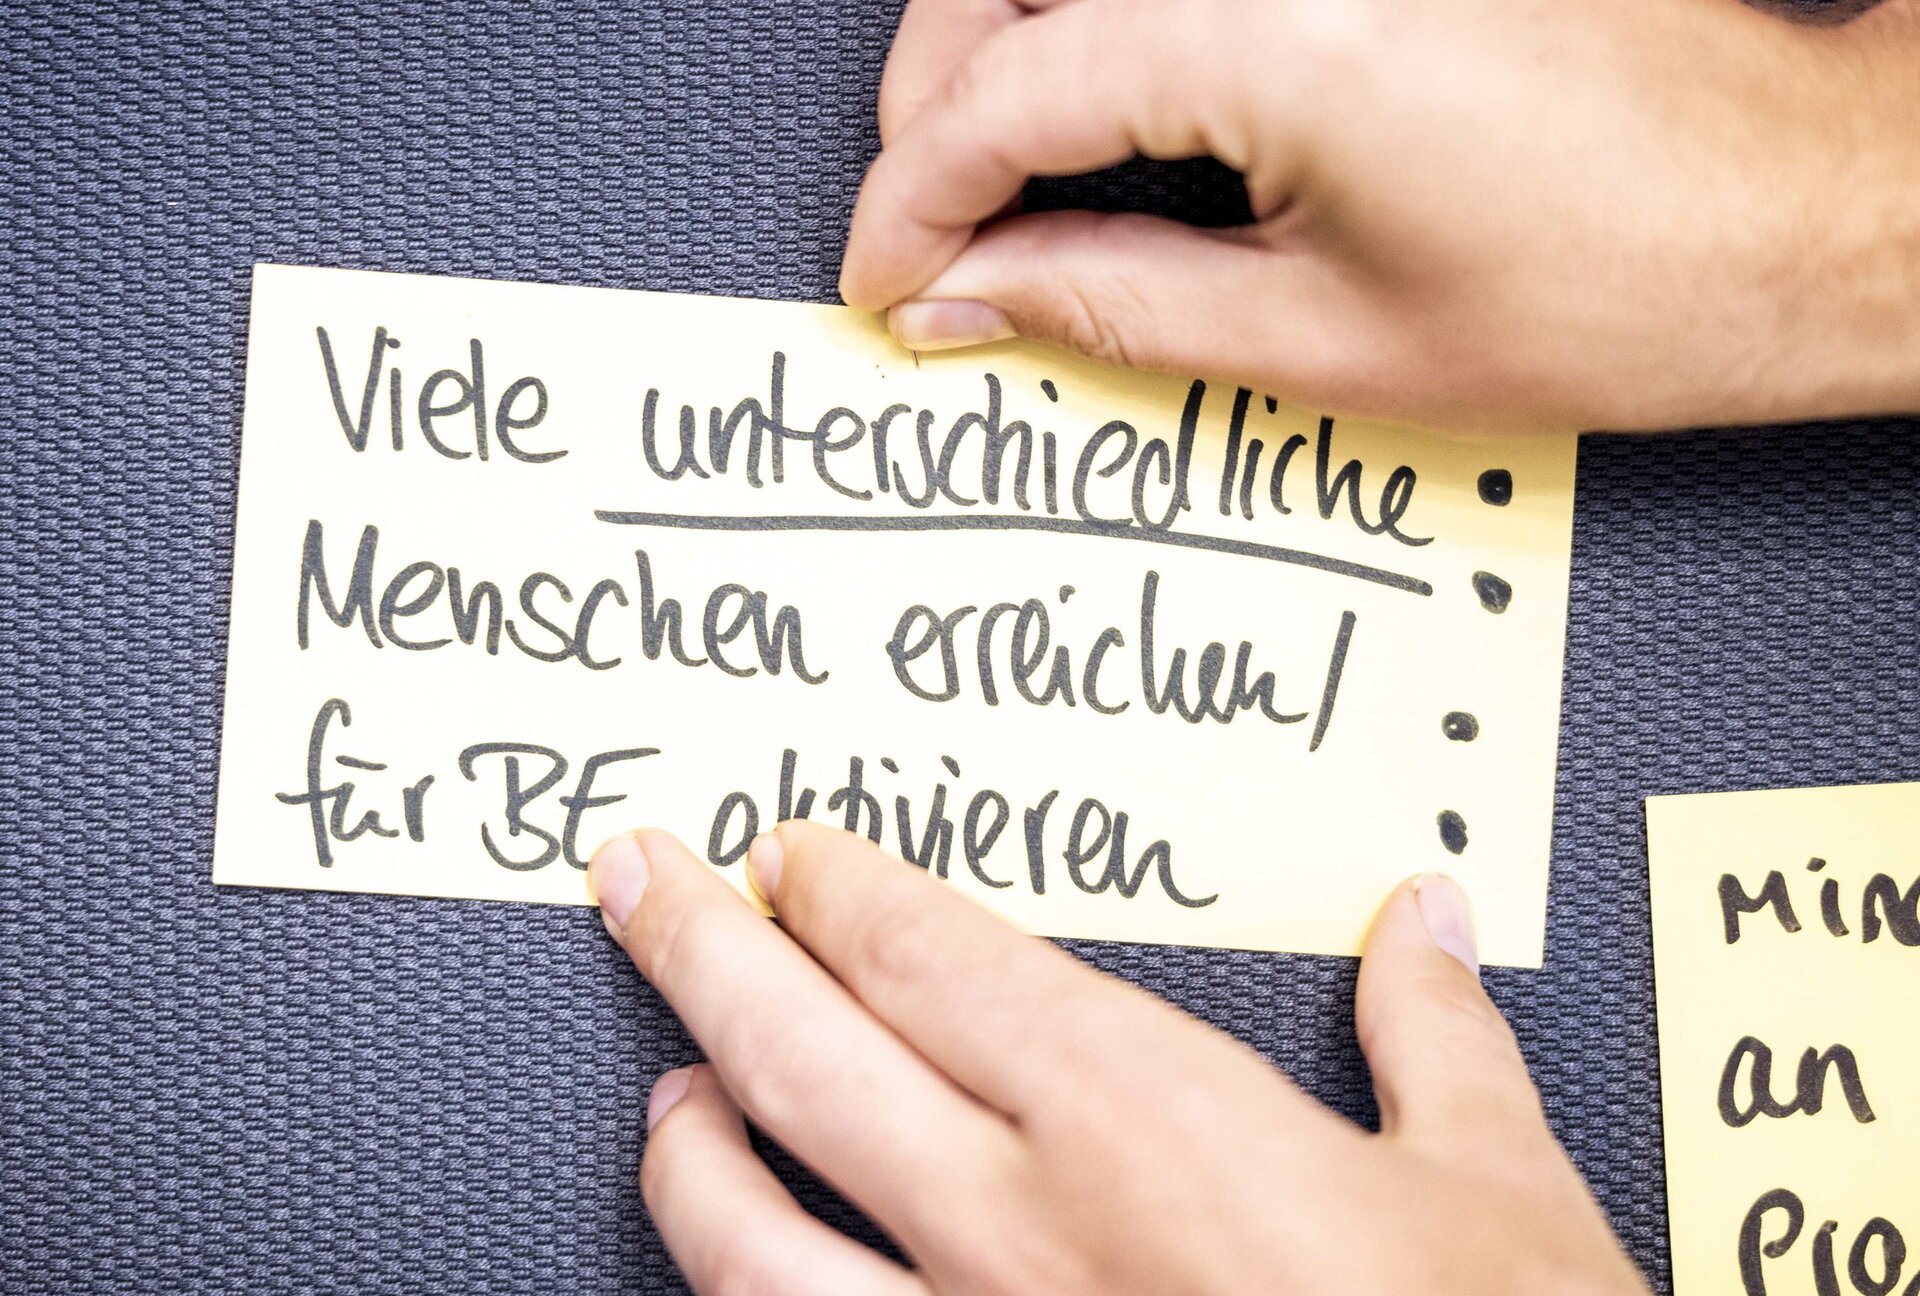 Viele unterschiedliche
Menschen erreichen/
für BE aktivieren
an